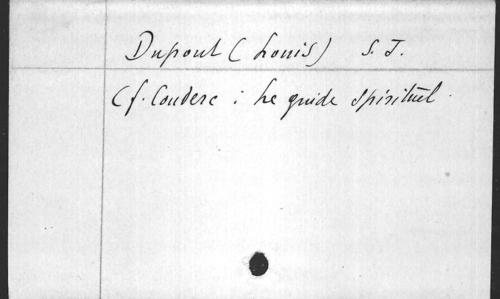 Dupont (Louis) S. J.
Cf. Couderc : Le guide spirituel.